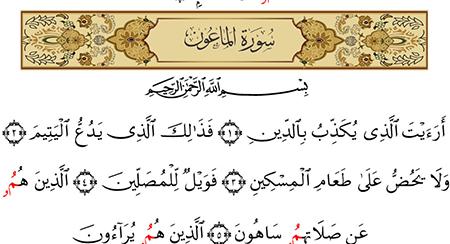 سُورَةُ المَاعُونِ
بِسْمِ اللَّهِ الرَّحْمَٰنِ الرَّحِيمِ
أَرَءَيْتَ الَّذِى يُكَذِّبُ بِالدِّينِ ﴿١﴾ فَذَٰلِكَ الَّذِى يَدُعُّ الْيَتِيمَ ﴿٢﴾
وَلَا يَحُضُّ عَلَىٰ طَعَامِ الْمِسْكِينِ ﴿٣﴾ فَوَيْلٌ لِّلْمُصَلِّينَ ﴿٤﴾ الَّذِينَ هُمُۥ
عَن صَلَاتِهِمُۥ سَاهُونَ ﴿٥﴾ الَّذِينَ هُمُۥ يُرَآءُونَ